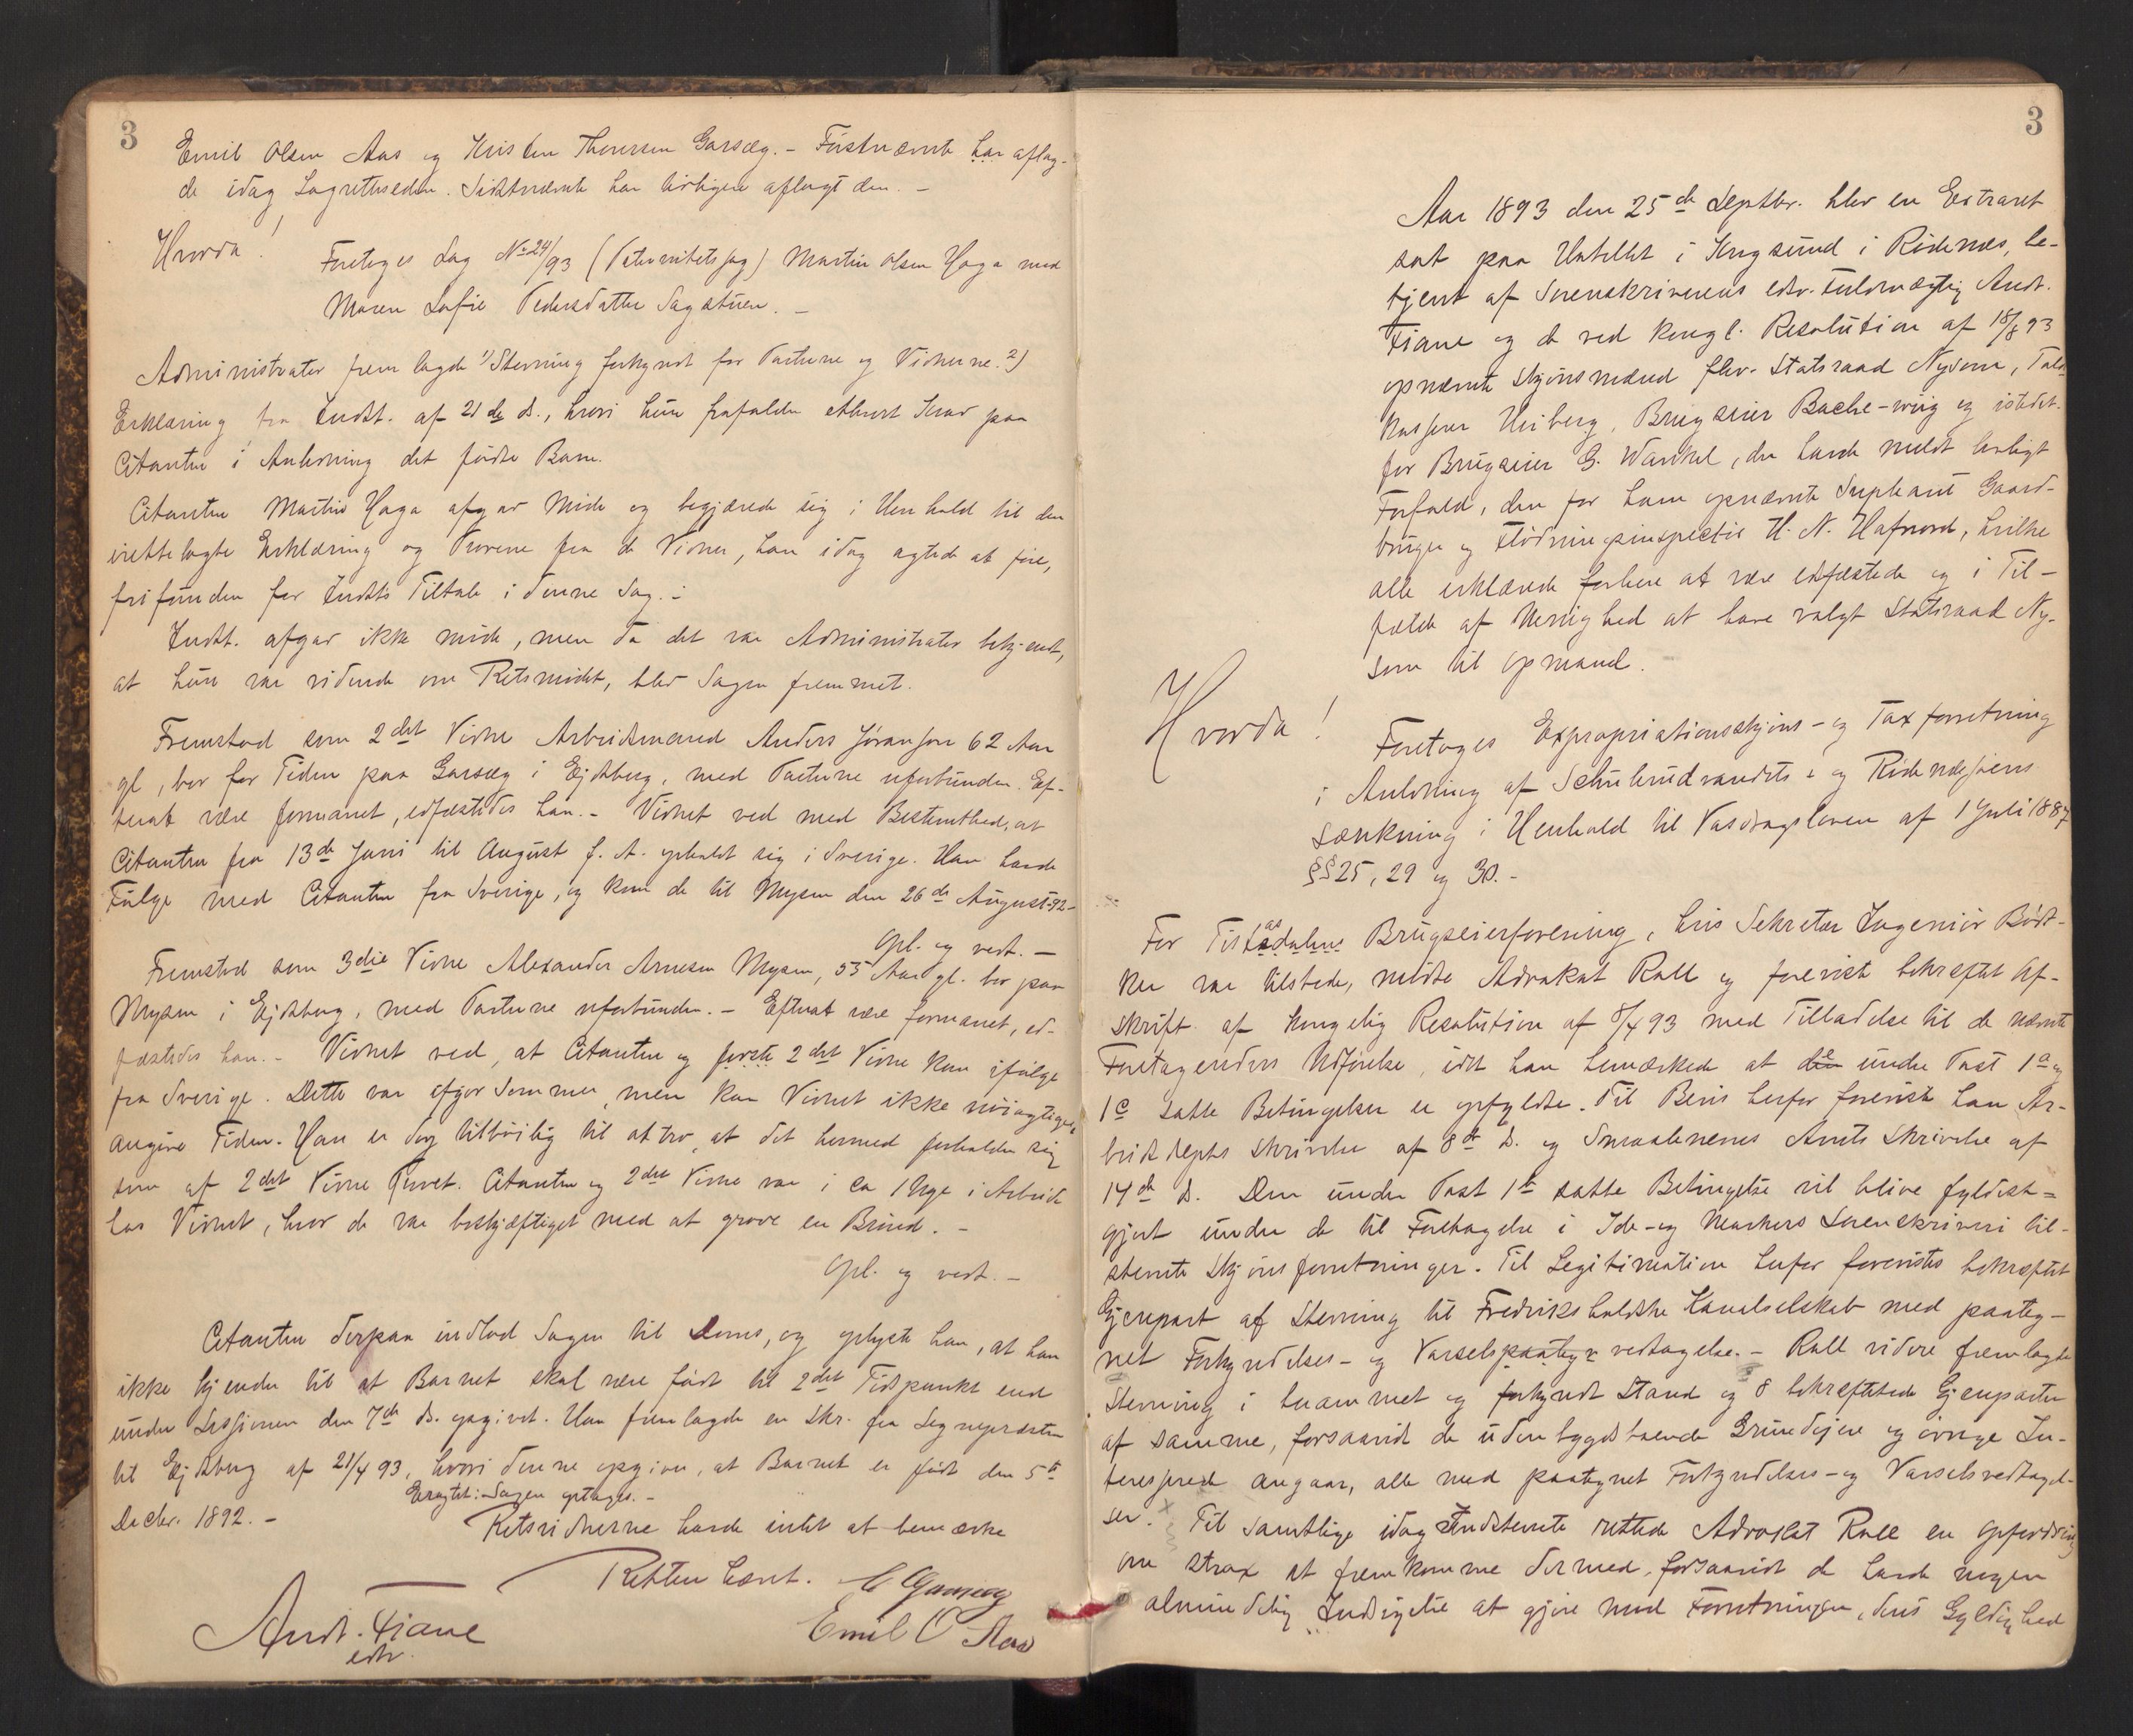 3
Emil Olsen Aas og Kristen Thoresen Garsæg. – Førstnævnte har aflag-
de idag Lagretteseden. Sidstnævnte har tidligere aflagt den. –
Hvorda!
Foretoges Sag No 24/93 (Paternitetssag) Martin Olsen Haga mod
Maren Sofie Pedersdatter Sagstuen. –
Administrator fremlagde 1) Stevning forkyndt for Parterne og Vidnerne. 2)
Erklæring fra Indst. af 21de ds., hvori hun frafalder ethvert Krav paa
Citanten i Anledning det fødte Barn.
Citanten Martin Haga afgav Møde og begjærede sig i Henhold til den
irettelagte Erklæring og Prov­ene fra de Vidner, han idag agtede at føre,
frifunden for Indsts Tiltale i denne Sag. –
Indst. afgav ikke møde, men da det var Administrator bekjendt,
at hun var vidende om Retsmødet, blev Sagen fremmet.
Fremstod som 2det Vidne Arbeidsmand Anders Jöranson 62 Aar
gl, bor for Tiden paa Garsæg i Ejdsberg, med Parterne uforbunden. Ef-
terat være formanet, edfæstedes han. – Vidnet ved med Bestemthed, at
Citanten fra 13de Juni til August f. A. opholdt sig i Sverige. Han havde
Følge med Citanten fra Sverige, og kom de til Mysen den 26de August 92 –
Opl. og vedt. –
Fremstod som 3die Vidne Alexander Arnesen Mysen, 55 Aar gl. bor paa
Mysen i Ejdsberg, med Parterne uforbunden. – Efterat være formanet, ed-
fæstedes han. – Vidnet ved, at Citanten og første 2det Vidne kom ifølge
fra Sverige. Dette var ifjor Sommer, men kan Vidnet ikke nøiagtigere
angive Tiden. Han er dog tilbøilig til at tro, at det hermed forholder sig
som af 2det Vidne provet. Citanten og 2det Vidne var i ca 1 Uge i Arbeide
hos Vidnet, hvor de var beskjæftiget med at grave en Brønd. –
Opl. og vedt. –
Citanten derpaa indlod Sagen til Doms, og oplyste han, at han
ikke kjender til at Barnet skal være født til 2det Tidspunkt end
under Sessionen den 7de ds. opgivet. Han fremlagde en Skr. fra Sognepræsten
til Ejdsberg af 21/4 93, hvori denne opgiver, at Barnet er født den 5te
Decbr. 1892. –
Eragtet: Sagen optages. –
Retsvidnerne havde intet at bemærke
Retten hævet.
Andr. Fiane
edv.
Emil O Aas
3
Aar 1893 den 25de Septbr. blev en Extraret
sat paa Hotellet i Krogsund i Rødenæs, be-
tjent af Sorenskriverens edsv. Fuldmægtig Andr.
Fiane og de ved kongl. Resolution af 18/8 93
opnævnte Skjønsmænd fhv. Statsraad Nysom, Told-
kasserer Heiberg, Brugseier Bache-Wiig og istedet-
for Brugseier G. Wankel, der havde meldt lovligt
Forfald, den for ham opnævnte Supleant Gaard-
bruger og Flødningsinspectør H. N. Hafnord, hvilke
alle erklærede forhen at være edfæstede og i Til-
fælde af Uenighed at have valgt Statsraad Ny-
som til Opmand.
Hvorda!
Foretoges Expropriationsskjøns- og Taxforretning
i Anledning af Schulerudvandets- og Rødenæssjøens
Sænkning i Henhold til Vasdragsloven af 1 Juli 1887
§§ 25, 29 og 30. –
For Tistedalens Brugseierforening, hvis Sekretær Ingeniør Bødt-
ker var tilstede, mødte Advokat Roll og foreviste bekræftet Af-
skrift af kongelig Resolution af 8/4 93 med Tilladelse til de nævnte
Foretagenders Udførelse, idet han bemærkede at de under Post 1a og
1c satte Betingelser er opfyldte. Til Bevis herfor foreviste han Ar-
beidsdepts Skrivelse af 8de ds. og Smaalenenes Amts Skrivelse af
14de ds. Den under Post 1b satte Betingelse vil blive fyldest-
gjort under de til Foretagelse i Ide- og Markers Sorenskriveri til-
stevnte Skjønsforretninger. Til Legitimation herfor forevistes bekræftet
Gjenpart af Stevning til Fredrikshaldske Kanalselskab med paateg-
net Forkyndelses- og Varselspaategn vedtagelse. – Roll videre fremlagde
Stevning i beammet og forkyndt Stand og 8 bekræftede Gjenparter
af samme, forsaavidt de udenbygdsboende Grundejere og øvrige In-
teresserede angaar, alle med paategnet Forkyndelses- og Varselsvedtagel-
ser. Til samtlige idag Indstevnte rettede Advokat Roll en Opfordring
om strax at fremkomme dermed, forsaavidt de havde nogen
almindelig Indsigelse at gjøre mod Forretningen, dens Gyldighed